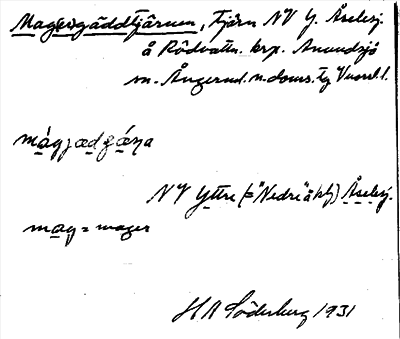 Magewgäddtjärnen, Tjärn NV Y. Åselesj.
å Rödvattn. krp. Anundsjö
sn. Ångermanl. n. doms.
màgjædʒæ̀ṇa
NV Yttre (= "Nedre" å kbl) Åselesj.
mag = mager
H A Söderberg 1931